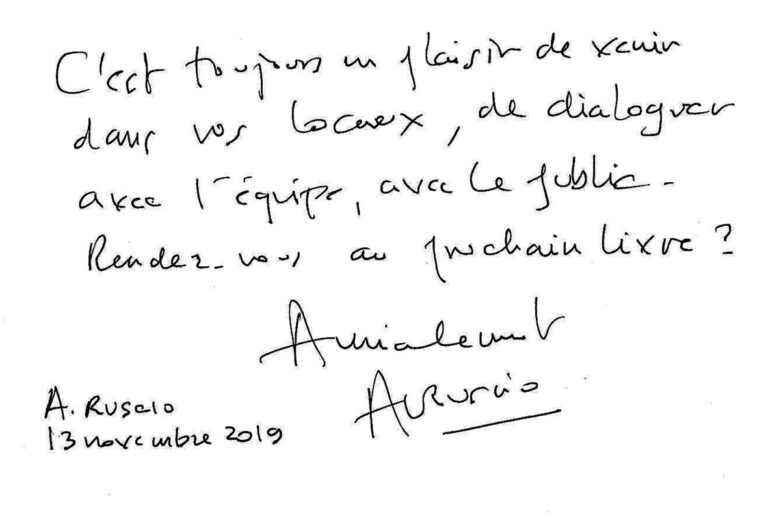 C'est toujours un plaisir de venir
dans vos locaux, de dialoguer
avec l'équipe, avec le public.
Rendez-vous au prochain livre ?
Amicalement
A Ruscio
A. RUSCIO
13 novembre 2019